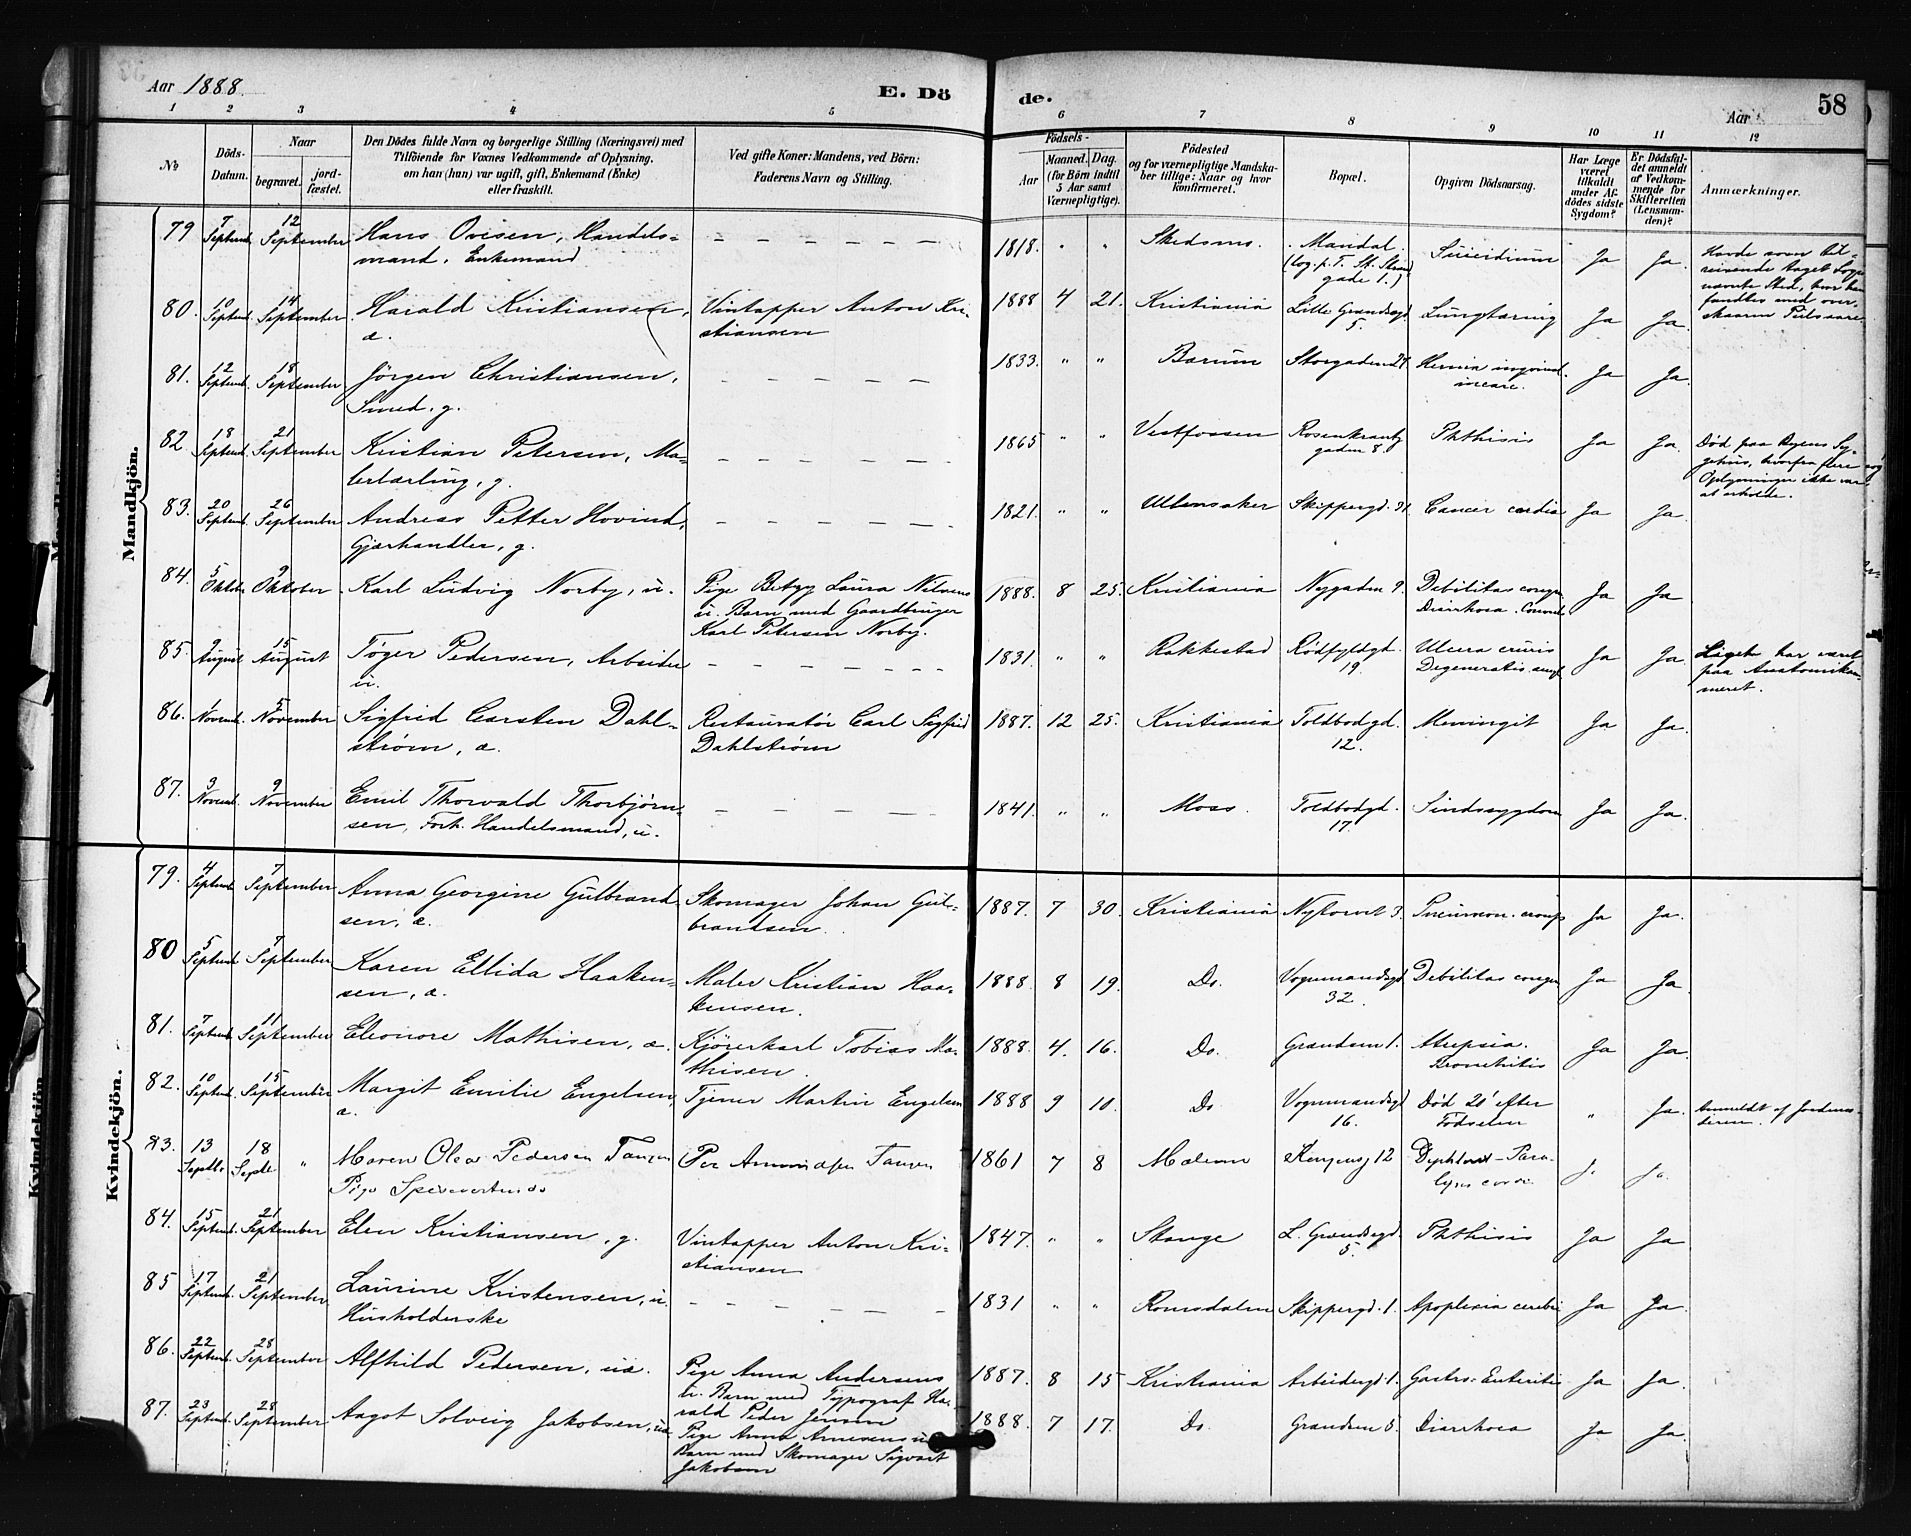 Aar 1888.
E. Döde.
Aar
58
1 2 3 4 5 6 7 8 9 10 11 12
No
Döds-Datum.
Naar
begravet.
jord-fæstet.
Den Dödes fulde Navn og borgerlige Stilling (Næringsvei) med
Tilföiende for Voxnes Vedkommende af Oplysning,
om han (hun) var ugift, gift, Enkemand (Enke)
eller fraskilt.
Ved gifte Koner: Mandens, ved Börn:
Faderens Navn og Stilling.
Födsels-
Aar
Maaned. Dag.
(for Börn indtil
5 Aar samt
Værnepligtige).
Födested
og for værnepligtige Mandska-
ber tillige: Naar og hvor
konfirmeret.
Bopæl.
Opgiven Dödsaarsag.
Har Læge
været
tilkaldt
under Af-
dödes sidste
Sygdom?
Er Dödsfal-
det anmeldt
af Vedkom-
mende for
Skifteretten
(Lensman-
den)?
Anmærkninger.
Mandkjön.
79 7 Septemb. 12 September Hans Ovesen, Handels- — — — 1818. " " Skedsmo. Mandal. Suicidium Ja Ja.
mand, Enkemand (log. p. T. St. Strand
gade 1.)
80. 10 Septemb. 14 September Harald Kristiansen, Vintapper Anton Kri- 1888 4 21. Kristiania Lille Grændsegd. Lungtæring Ja Ja.
æ. stiansen 5.
81. 12 Septemb. 18 September Jörgen Christiansen, — — — 1833. " " Bærum Storgaden Hernia Ja Ja.
Smed, g.
82 18 Septemb. 21 September Kristian Petersen, Ma- — — — 1865 " " Vestfossen Rosenkrantz Phthisis Ja Ja. Död paa Byens Sy-
lerlærling, g. gaden 8. gehus, hvorfra flere
Oplysninger ikke var
at erholde.
83. 20 Septemb. 26 September Andreas Petter Hovind, — — — 1821. " " Ullensaker Skippergd. Cancer cardia Ja Ja.
Gjærhandler, g.
84. 5 Oktober 9 Oktober Karl Ludvig Norby, u. Pige Betzy Laura Nilsens 1888. 8 25. Kristiania Nygaden 9. Debilitas congen Ja Ja
u. Barn med Gaardbruger Diarrhoea.
Karl Petersen Norby.
85. 9 August 15 August Töger Pedersen, Arbeider — — — 1831. " " Rakkestad Rödfyldgd. Ulcera cruris Ja Ja. Liget har været
u. 19. Degeneratio paa Anatomikam-
meret.
86. 1 Novemb. 5 November Sigfrid Carsten Dahl- Restauratör Carl Sigfrid 1887. 12 25. Kristiania Toldbodgd. Meningit Ja Ja.
ström, æ. Dahlström 12.
87. 3 Novemb. 9 November Emil Thorvald Thorbjörn- — — — 1841. " " Moss. Toldbodgd. Sindssygdom Ja Ja.
sen, Forh. Handelsmand, u. 17.
Kvindekjön.
79. 4 Septemb. 7 September Anna Georgine Gulbrand- Skomager Johan Gul- 1887. 7 30. Kristiania Nytorvet 3. Pneumon. croup Ja Ja.
sen, æ. brandsen.
80 5 Septemb. 7 September Karen Ellida Haaken- Maler Kristian Haa- 1888 8 19. Do. Vognmandsgd. Debilitas congen Ja Ja.
sen, æ. kensen. 32.
81. 7 Septemb. 11 September Eleonore Mathisen, æ. Kjörerkarl Tobias Ma- 1888. 4. 16. Do. Grændsen 1. Atrepsia. Ja Ja.
thisen. Bronchitis
82. 10 Septemb. 15 September Margit Emilie Engelsen, Tjener Martin Engelsen 1888 9 10. Do Vognmandsgd Död 20' efter " Ja. Anmeldt af Jordemo-
æ. 16. Födselen deren.
83. 13 Septbr 18 Septbr " Maren Olea Pedersen Tangen Per Amundsen Tangen 1861 7 8 Kongensg 12
Pige
84. 15 Septemb. 21 September Elen Kristiansen, g. Vintapper Anton Kri- 1847. " " Stange L. Grændsegd. Phthisis Ja Ja
stiansen 5.
85 17 Septemb. 21 September Laurine Kristensen, u. — — — 1831 " " Romsdalen Skippergd. 1. Apoplexia cerebri Ja Ja.
Husholderske
86. 22 Septemb. 28 September Alfhild Pedersen, uæ. Pige Anna Andersens 1887. 8 15 Kristiania Arbeidergd. 1. Gastro-Enterit Ja Ja.
u. Barn med Typograf Ha-
rald Peder Jensen
87. 23 Septemb. 28 September Aagot Solveig Jakobsen, uæ Pige Anna Arnesens u. 1888. 7 17. Do. Grændsen 5. Diarrhoea Ja Ja.
Barn med Skomager Sigvart
Jakobsen